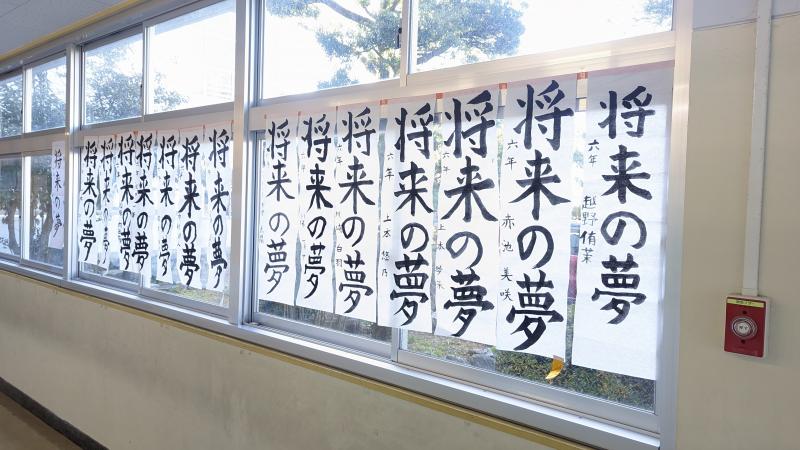 将来の夢
六年 越野侑茉
将来の夢
六年 赤池美咲
将来の夢
六年 上本
将来の夢
六年 上本悠乃
将来の夢
六年 白羽
将来の夢
将来の夢
将来の夢
将来の夢
将来の夢
将来の夢
将来の夢
将来の夢
将来の夢
将来の夢